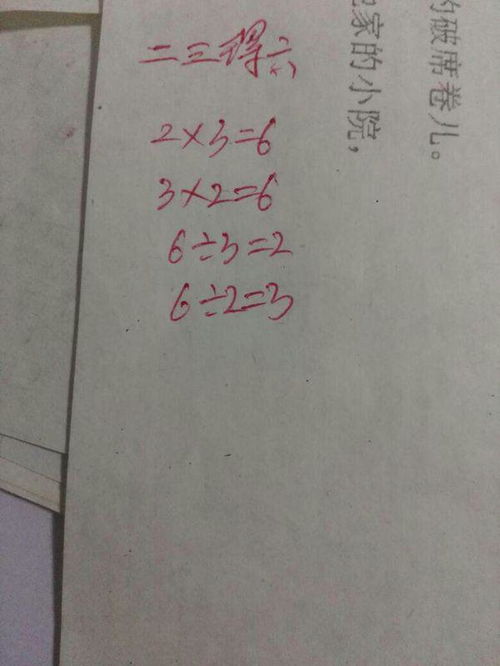 二三得六
2×3=6
3×2=6
6÷3=2
6÷2=3
的破席卷儿。
家的小院，